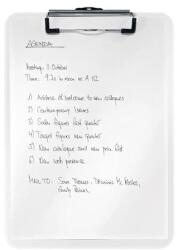 AGENDA
Meeting: 8. October
Time: 9.20 in room no A 112
1) Address of welcome to new collegues
2) Contemporary Issues
3) Sales figures last quarter
4) Target figures new quarter
5) New catalogue and new price list
6) New web presence
MAIL TO: Sam Thomas,
Emily Blake,